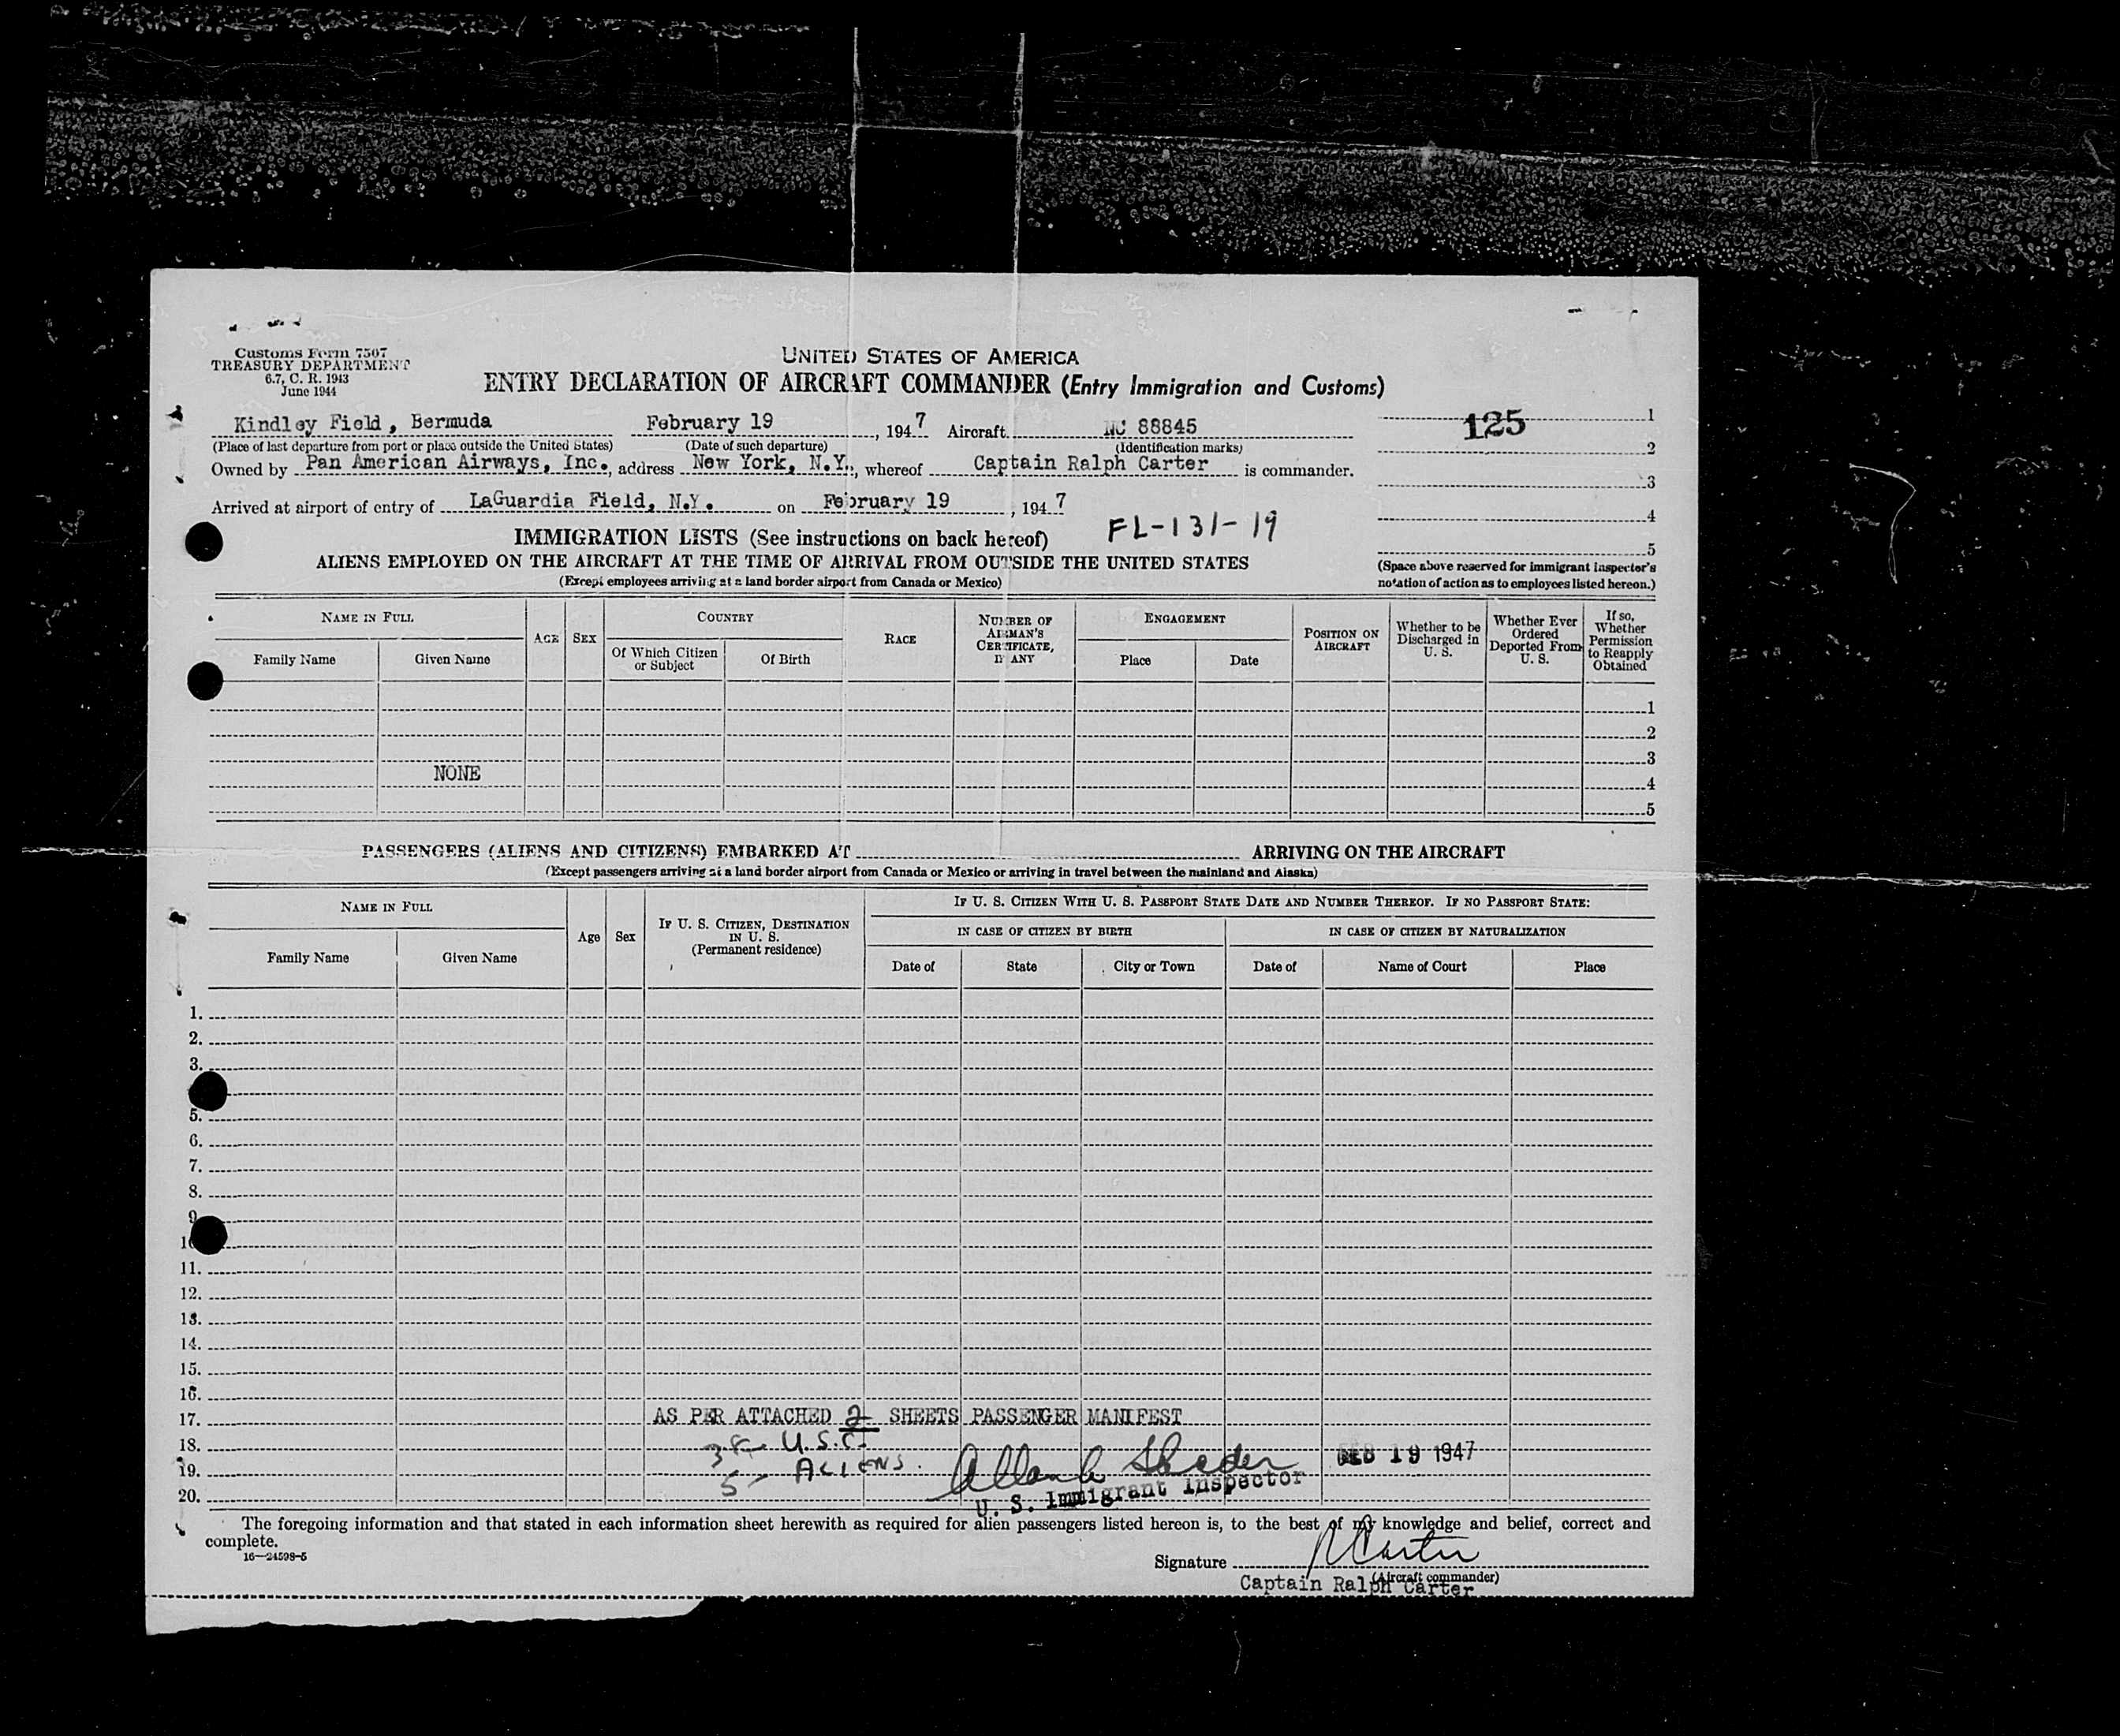 Customs Form 7507
TREASURY DEPARTMENT
6.7, C. R. 1943
June 1944
UNITED STATES OF AMERICA
ENTRY DECLARATION OF AIRCRAFT COMMANDER (Entry Immigration and Customs)
Kindley Field, Bermuda February 19, 1947 Aircraft NC 88845
(Place of last departure from port or place outside the United States) (Date of such departure) (Identification marks)
Owned by Pan American Airways, Inc., address New York, N.Y., whereof Captain Ralph Carter is commander.
Arrived at airport of entry of LaGuardia Field, N.Y. on February 19, 1947
125
1
2
3
4
5
(Space above reserved for immigrant inspector's
notation of action as to employees listed hereon.)
FL-131-19
IMMIGRATION LISTS (See instructions on back hereof)
ALIENS EMPLOYED ON THE AIRCRAFT AT THE TIME OF ARRIVAL FROM OUTSIDE THE UNITED STATES
(Except employees arriving at a land border airport from Canada or Mexico)
NAME IN FULL
Family Name Given Name
AGE SEX
COUNTRY
Of Which Citizen or Subject
Of Birth
RACE
NUMBER OF AIRMAN'S CERTIFICATE, IF ANY
ENGAGEMENT
Place Date
POSITION ON AIRCRAFT
Whether to be Discharged in U. S.
Whether Ever Ordered Deported From U. S.
If so, Whether Permission to Reapply Obtained
1
2
3
NONE
4
5
PASSENGERS (ALIENS AND CITIZENS) EMBARKED AT ARRIVING ON THE AIRCRAFT
(Except passengers arriving at a land border airport from Canada or Mexico or arriving in travel between the mainland and Alaska)
NAME IN FULL
Family Name Given Name
Age Sex
IF U. S. CITIZEN, DESTINATION IN U. S.
(Permanent residence)
IF U. S. CITIZEN WITH U. S. PASSPORT STATE DATE AND NUMBER THEREOF. IF NO PASSPORT STATE:
IN CASE OF CITIZEN BY BIRTH IN CASE OF CITIZEN BY NATURALIZATION
Date of State City or Town Date of Name of Court Place
1.
2.
3.
5.
6.
7.
8.
9
10
11.
12.
13.
14.
15.
16.
17. AS PER ATTACHED 2 SHEETS PASSENGER MANIFEST
18. U.S.C.
19. 5- ALIENS. FEB 19 1947
20. U. S. Immigrant Inspector
The foregoing information and that stated in each information sheet herewith as required for alien passengers listed hereon is, to the best of my knowledge and belief, correct and
complete.
16—24598-5
Signature R Carter
(Aircraft commander)
Captain Ralph Carter